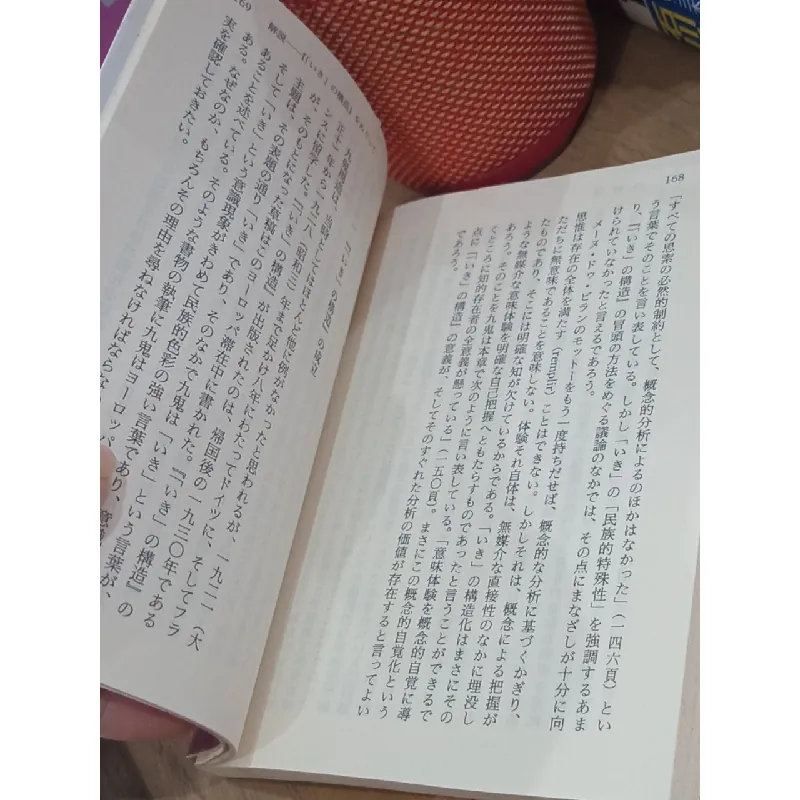 168
「すべての思索の必然的制約として、概念的分析によるのほかはなかった」(一四六頁)とい
う言葉でそのことを言い表している。しかし「いき」の「民族的特殊性」を強調するあま
り、『「いき」の構造』の冒頭の方法をめぐる議論のなかでは、その点にまなざしが十分に向
けられていなかったと言えるであろう。
メーヌ・ドゥ・ビランのモットーをもう一度持ちだせば、概念的な分析に基づくかぎり、
思惟は存在の全体を満たす(remplir)ことはできない。しかしそれは、概念による把握が
ただちに無意味であることを意味しない。体験それ自体は、無媒介な直接性のなかに埋没し
たものであり、そこには明確な知が欠けているからである。「いき」の構造化はまさにその
ような無媒介な意味体験を明確な自己把握へともたらすものであったと言うことができるで
あろう。そのことを九鬼は本章で次のように言い表している。「意味体験を概念的自覚に導
くところに知的存在者の全意義が懸っている」(一五〇頁)。まさにこの概念的自覚化という
点に『「いき」の構造』の意義が、そしてそのすぐれた分析の価値が存在すると言ってよい
であろう。
169
解説──『「いき」の構造』をめぐって
一 『「いき」の構造』の成立
九鬼周造は、当時としてはほとんど他に例がなかったと思われるが、一九二一(大
正十)年から一九二八(昭和三)年まで足かけ八年にわたってドイツに、そしてフラ
ンスに留学した。『「いき」の構造』が出版されたのは、帰国後の一九三〇年である
が、そのもとになった草稿はこのヨーロッパ滞在中に書かれた。『「いき」の構造』の
主題は、その表題の通り「いき」であり、そのなかで九鬼は「いき」という言葉が、
そして「いき」という意識現象がきわめて民族的色彩の強い言葉であり、意識
あることを述べている。そのような書物の執筆に九鬼はヨーロッパ
ある。なぜなのか、もちろんその理由を尋ねなければならな
実を確認しておきたい。